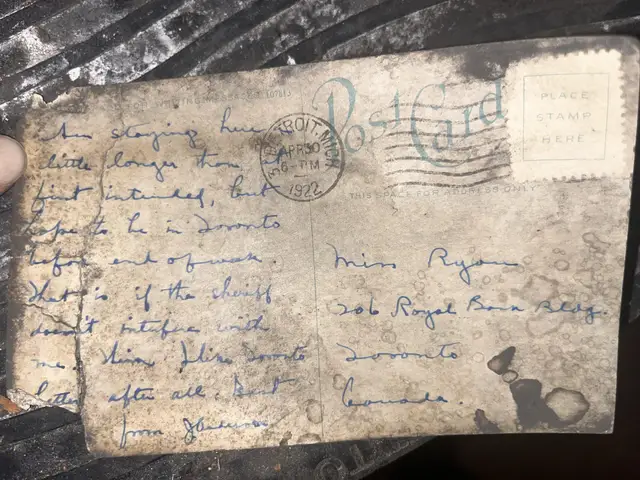 Post Card
DETROIT, MICH.
APR 30
6 - PM
1922
PLACE
STAMP
HERE
THIS SPACE FOR ADDRESS ONLY
Am staying here
little longer than I
first intended, but
hope to be in Toronto
before end of week.
That is if the sheriff
doesn't interfere with
me. I like Toronto
better after all. Best
from
Miss Ryan
206 Royal Bank Bldg.
Toronto
Canada.